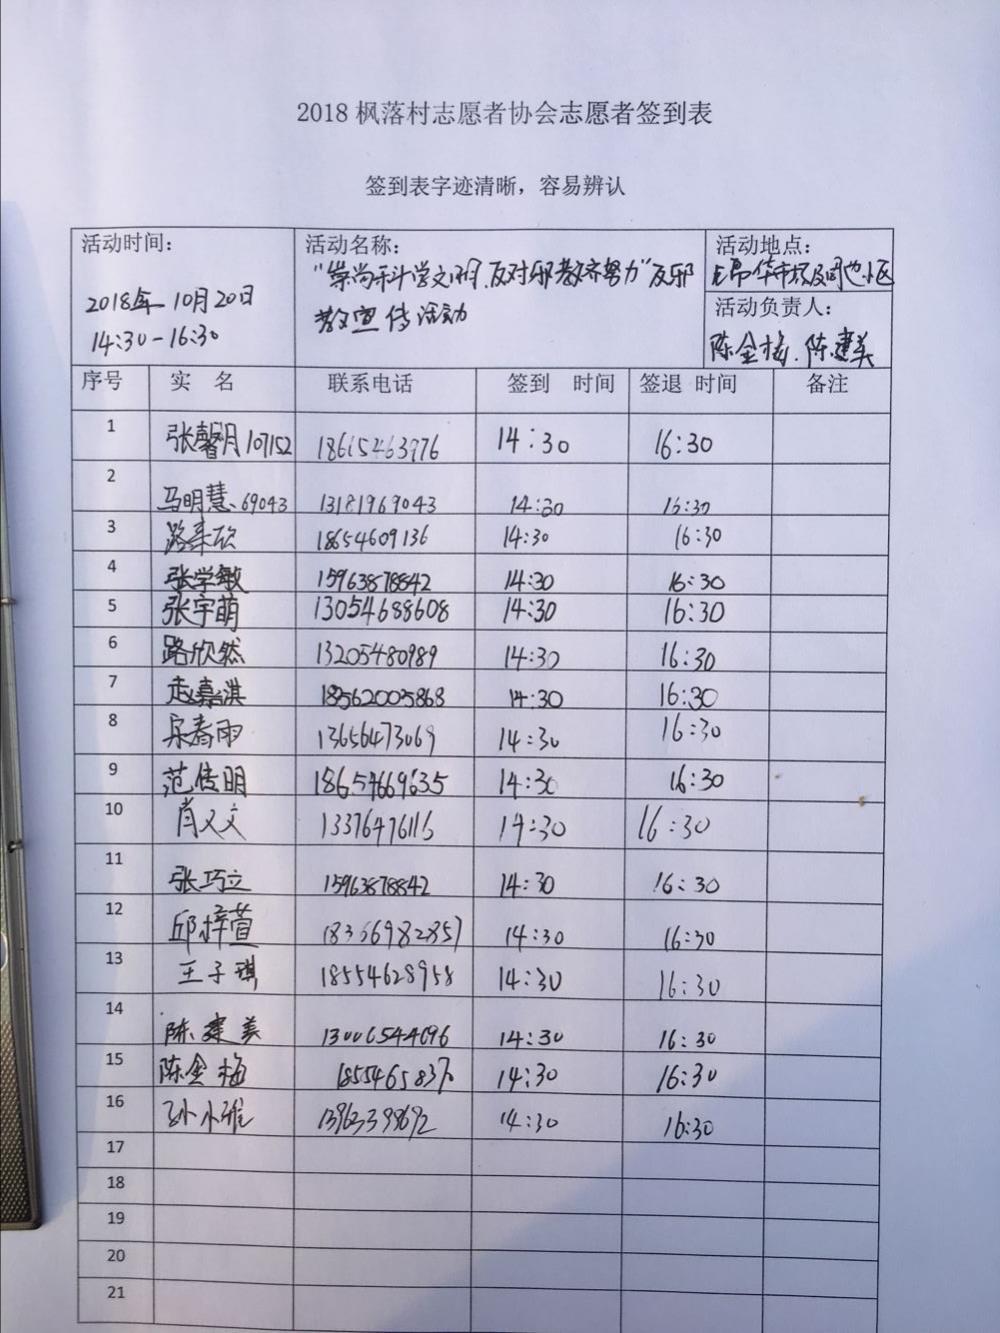 2018 枫落村志愿者协会志愿者签到表
签到表字迹清晰，容易辨认
活动时间：
2018年10月20日
14:30-16:30
活动名称：
“崇尚科学文明.反对邪教齐努力”反邪
教宣传活动
活动地点：
及周边小区
活动负责人：
陈金梅、陈建美
序号 实 名 联系电话 签到 时间 签退 时间 备注
1 张馨月107152 18615463976 14:30 16:30
2 马明慧、69043 13181969043 14:30 16:30
3 路 18654609136 14:30 16:30
4 张学敏 15963878842 14:30 16:30
5 张宇萌 13054688608 14:30 16:30
6 路欣然 13205480989 14:30 16:30
7 赵嘉淇 18562005868 14:30 16:30
8 宋春雨 13656473069 14:30 16:30
9 范传明 18654669635 14:30 16:30
10 肖又文 13376476116 14:30 16:30
11 张巧立 15963878842 14:30 16:30
12 邱梓萱 18366982857 14:30 16:30
13 王子琪 18554628958 14:30 16:30
14 陈建美 13006544696 14:30 16:30
15 陈金梅 18554658370 14:30 16:30
16 孙小雅 14:30 16:30
17
18
19
20
21